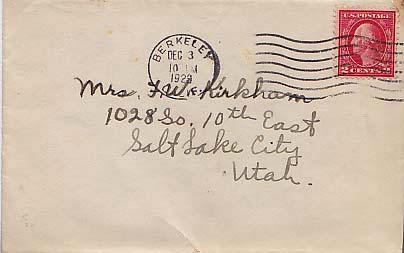 BERKELEY
DEC 3
10 AM
1923
U.S. POSTAGE
2 CENTS 2
Mrs. F. W. Kirkham
1028 So. 10th East
Salt Lake City
Utah.